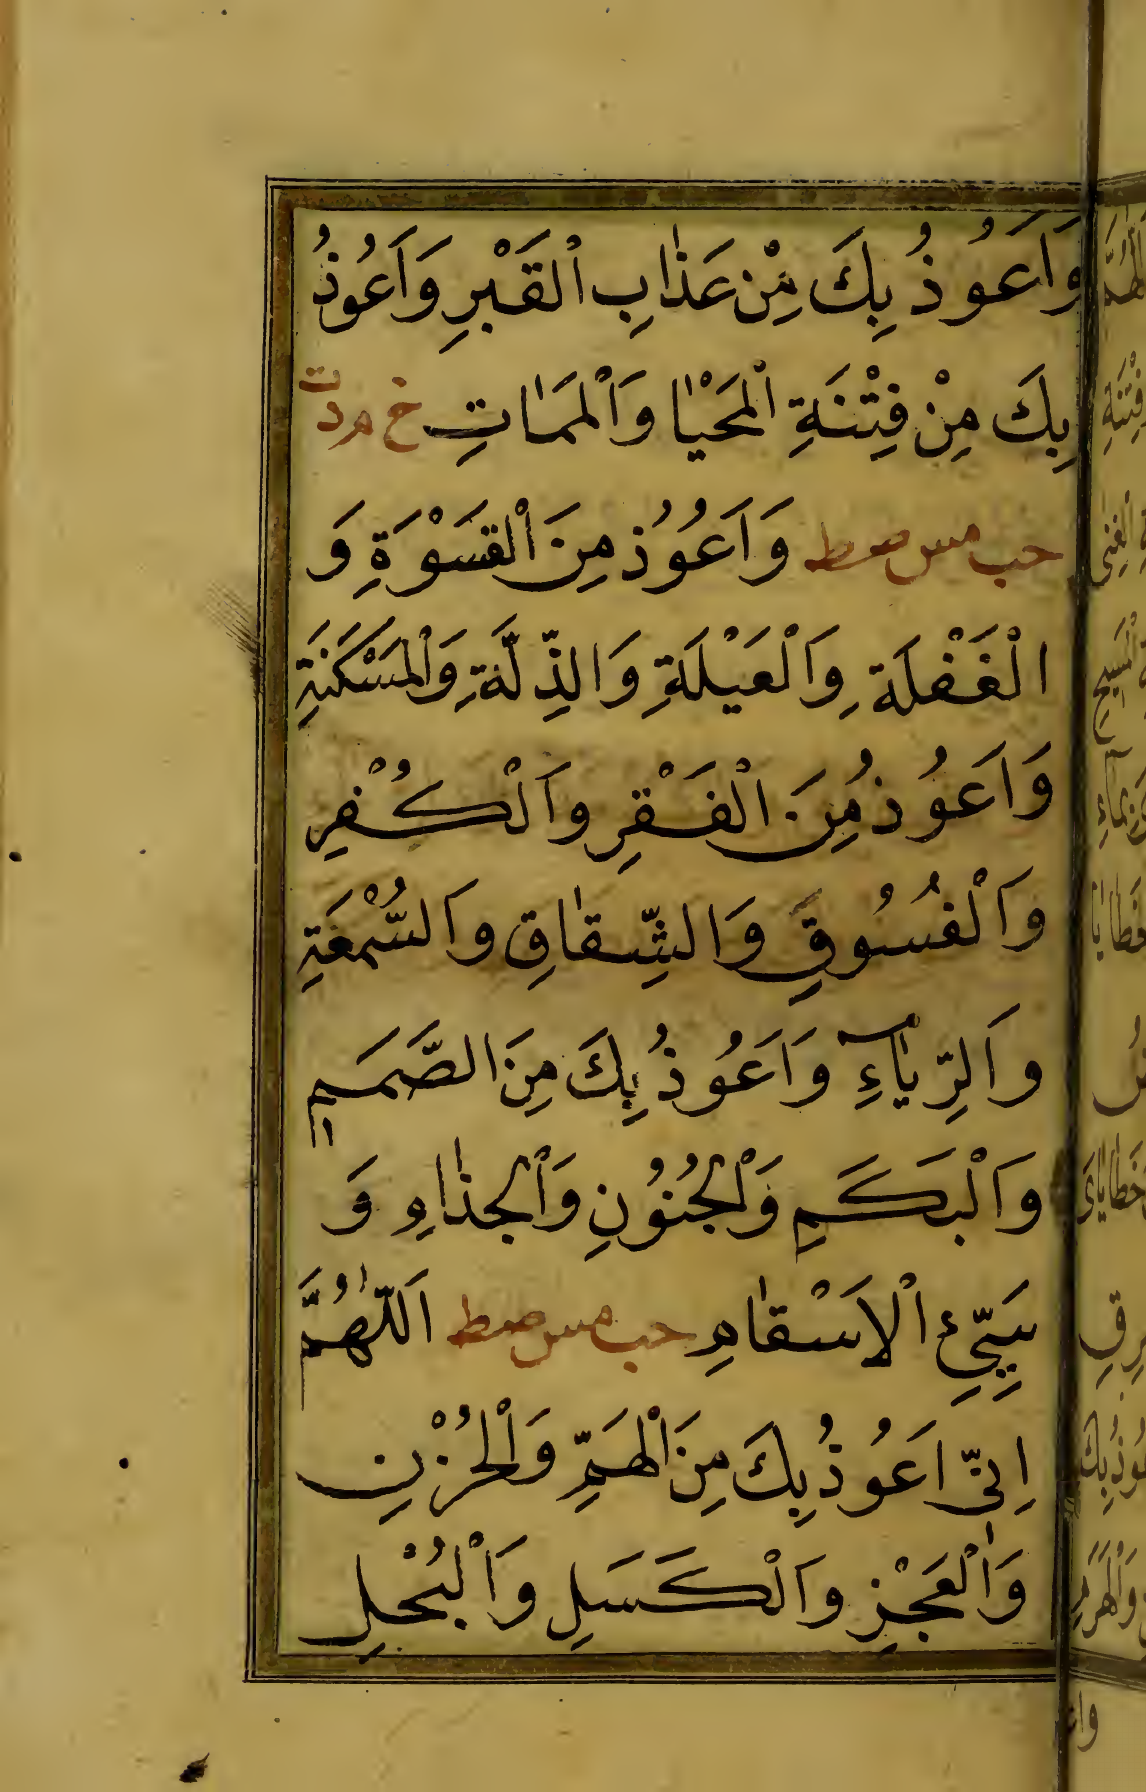 وَاَعُوذُ بِكَ مِنْ عَذَابِ اْلقَبْرِ وَاَعُوذُ
بِكَ مِنْ فِتْنَةِ اْلمَحْيَا وَاْلمَمَاتِ خ م د ت
حب مس صط وَاَعُوُذ مِنَ اْلقَسْوَةِ وَ
الْغَفْلَةِ وَالْعَيْلَةِ وَالذِّلَّةِ وَالْمَسْكَنَةِ
وَاَعُوُذ مِنَ الْفَقْرِ وَالْكُفْرِ
وَالْفُسُوقِ وَالشِّقَاقِ وَالسُّمْعَةِ
وَالرِّيَاءِ وَاَعُوُذ بِكَ مِنَ الصَّمَمِ
وَالْبَكَمِ وَلْجُنُونِ وَاْلجذَامِ وَ
سَيِّئِ اْلاَسْقَامِ حب مس صط اَللّٰهُمَّ
اِنِّى اَعُوذُ بِكَ مِنَ اْلهَمِّ وَاْلحُزْنِ
وَاْلعَجْزِ وَالْكَسَلِ وَاْلبُخْلِ